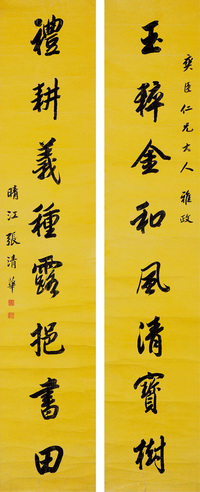 奭臣仁兄大人雅政
玉粹金和風清寶樹
禮耕義種露挹書田
晴江張清華